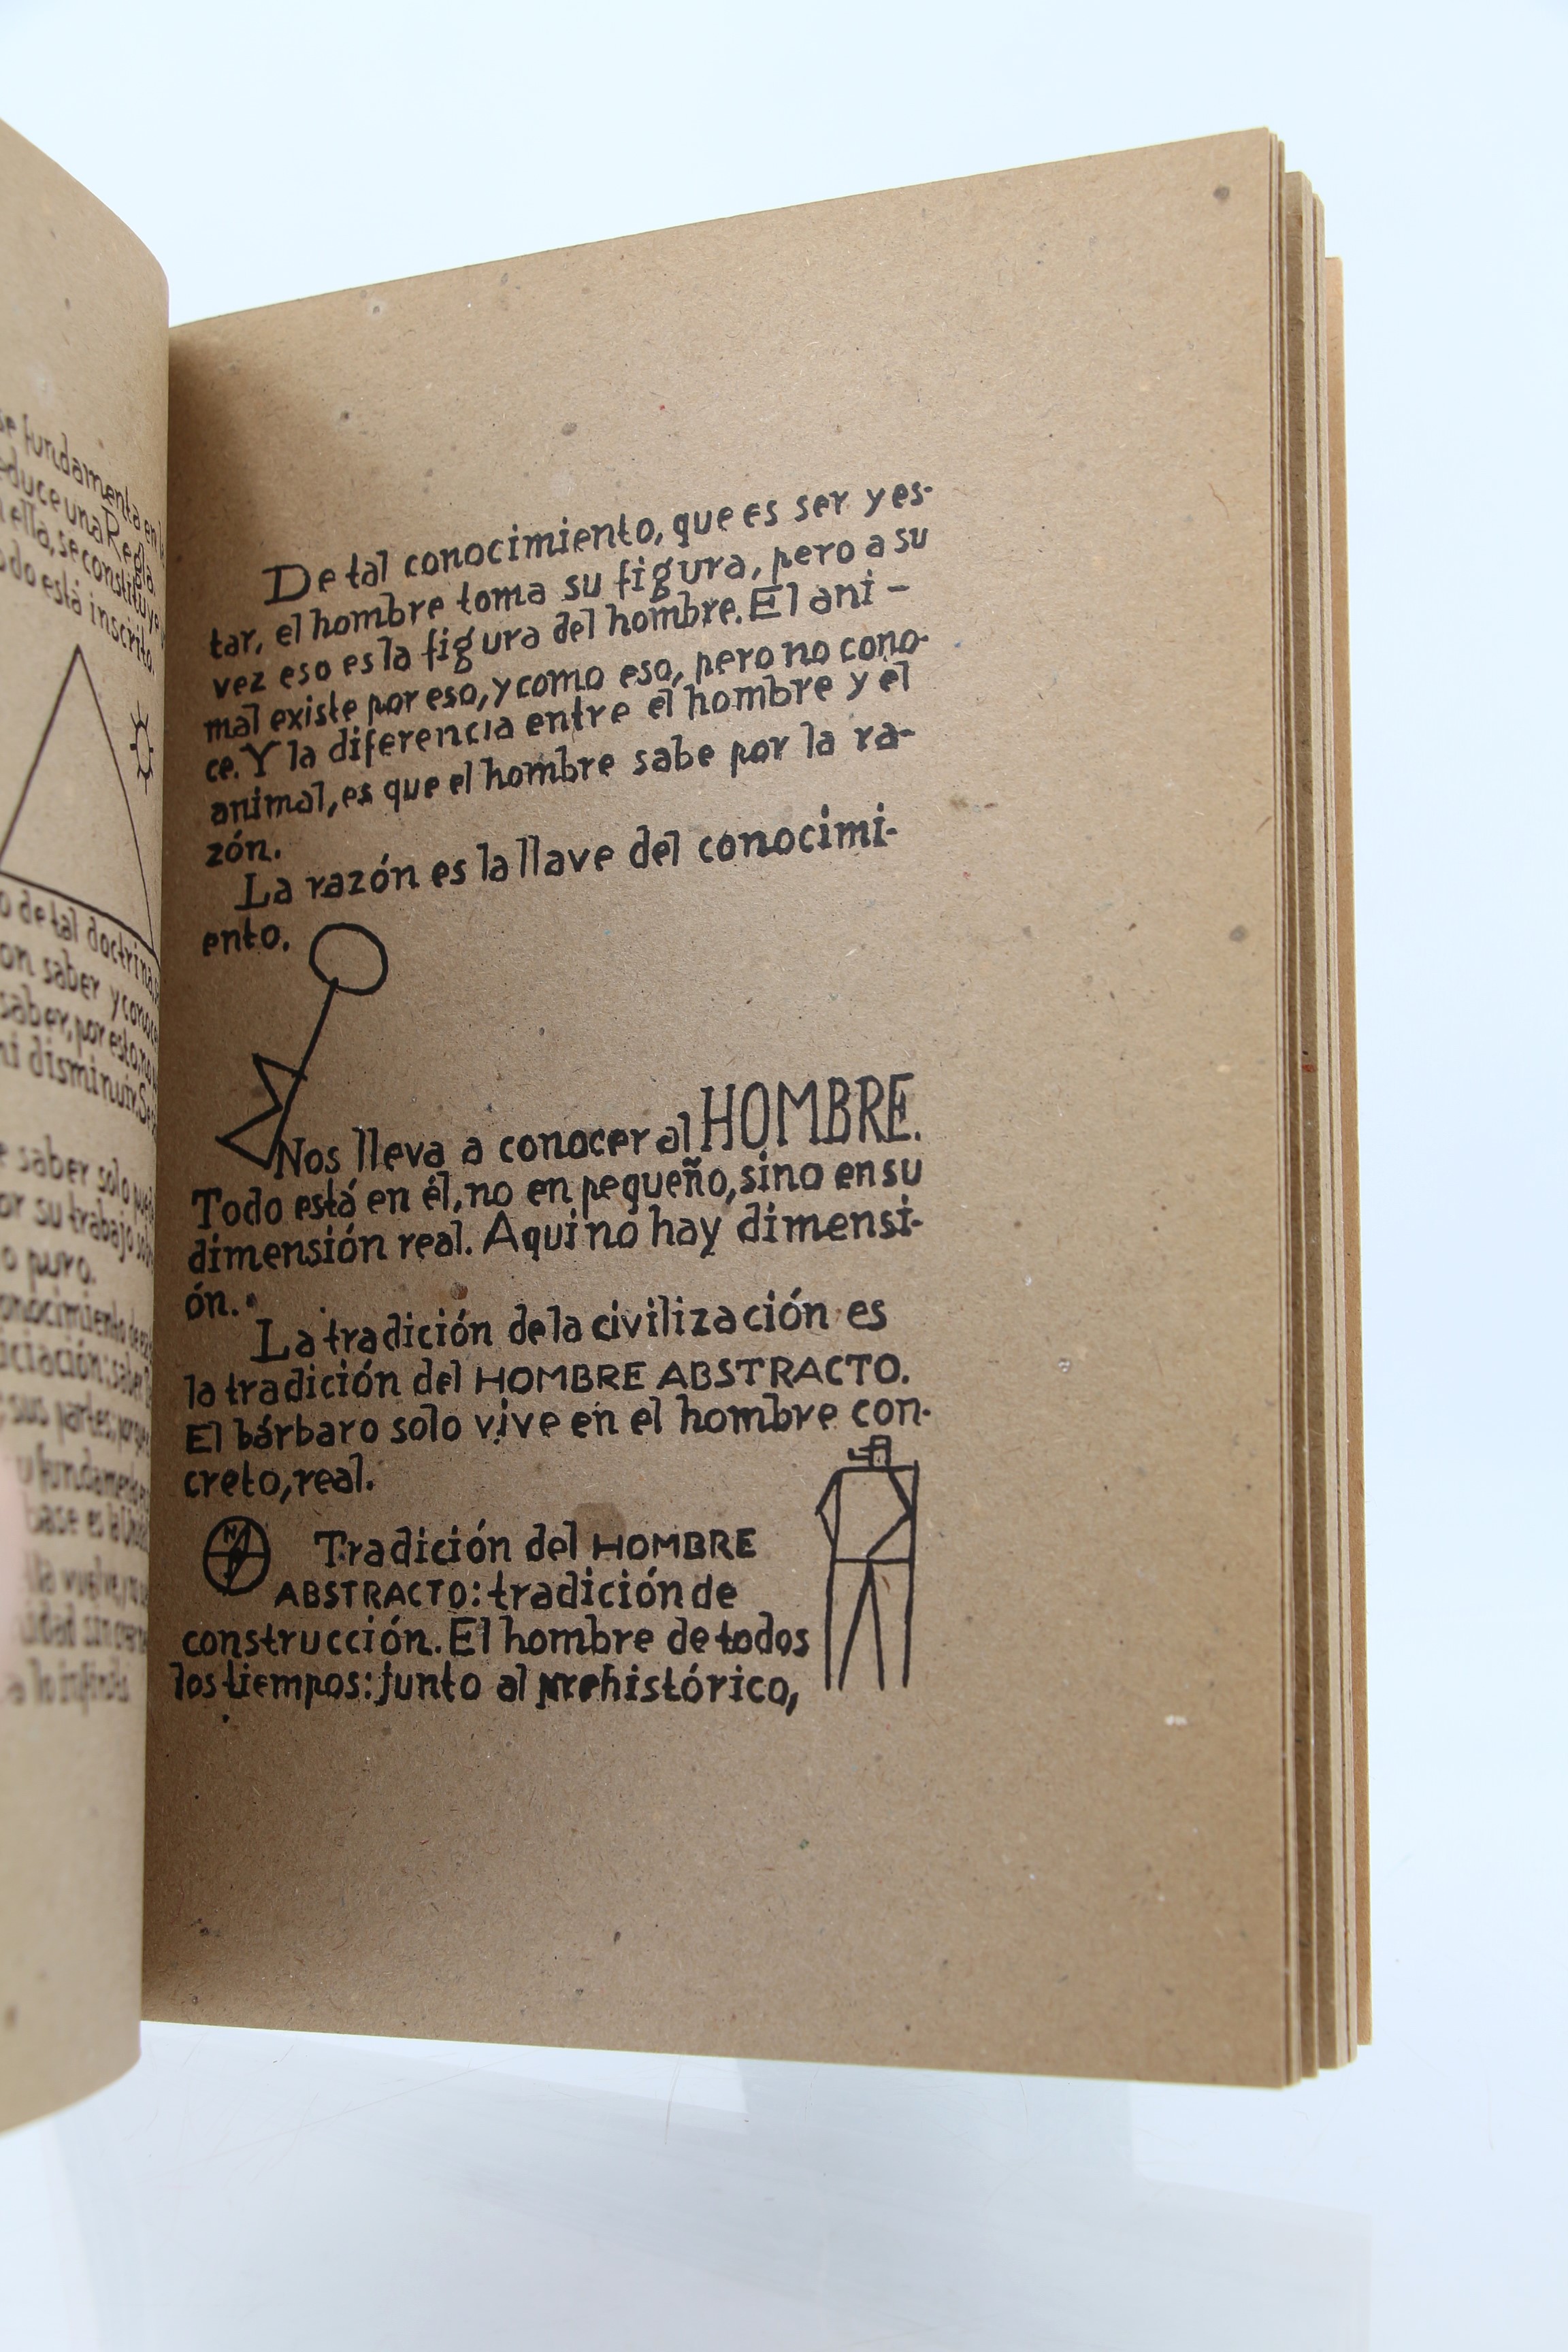 se fundamenta en
educe una Regla.
ella, se constituye
do está inscrito.
o de tal doctrina,
on saber y conoce
saber, por esto, no
ni disminuir. Se
e saber solo pued
or su trabajo sob
o puro.
onocimiento de es
iciación: saber
sus partes, porque
u fundamento
base es la Un
De tal conocimiento, que es ser y es-
tar, el hombre toma su figura, pero a su
vez eso es la figura del hombre. El ani-
mal existe por eso, y como eso, pero no cono-
ce. Y la diferencia entre el hombre y el
animal, es que el hombre sabe por la ra-
zón.
La razón es la llave del conocimi-
ento.
Nos lleva a conocer al HOMBRE.
Todo está en él, no en pequeño, sino en su
dimensión real. Aqui no hay dimensi-
ón.
La tradición de la civilización es
la tradición del HOMBRE ABSTRACTO.
El bárbaro solo vive en el hombre con-
creto, real.
N
Tradición del HOMBRE
ABSTRACTO: tradición de
construcción. El hombre de todos
los tiempos: junto al prehistórico,